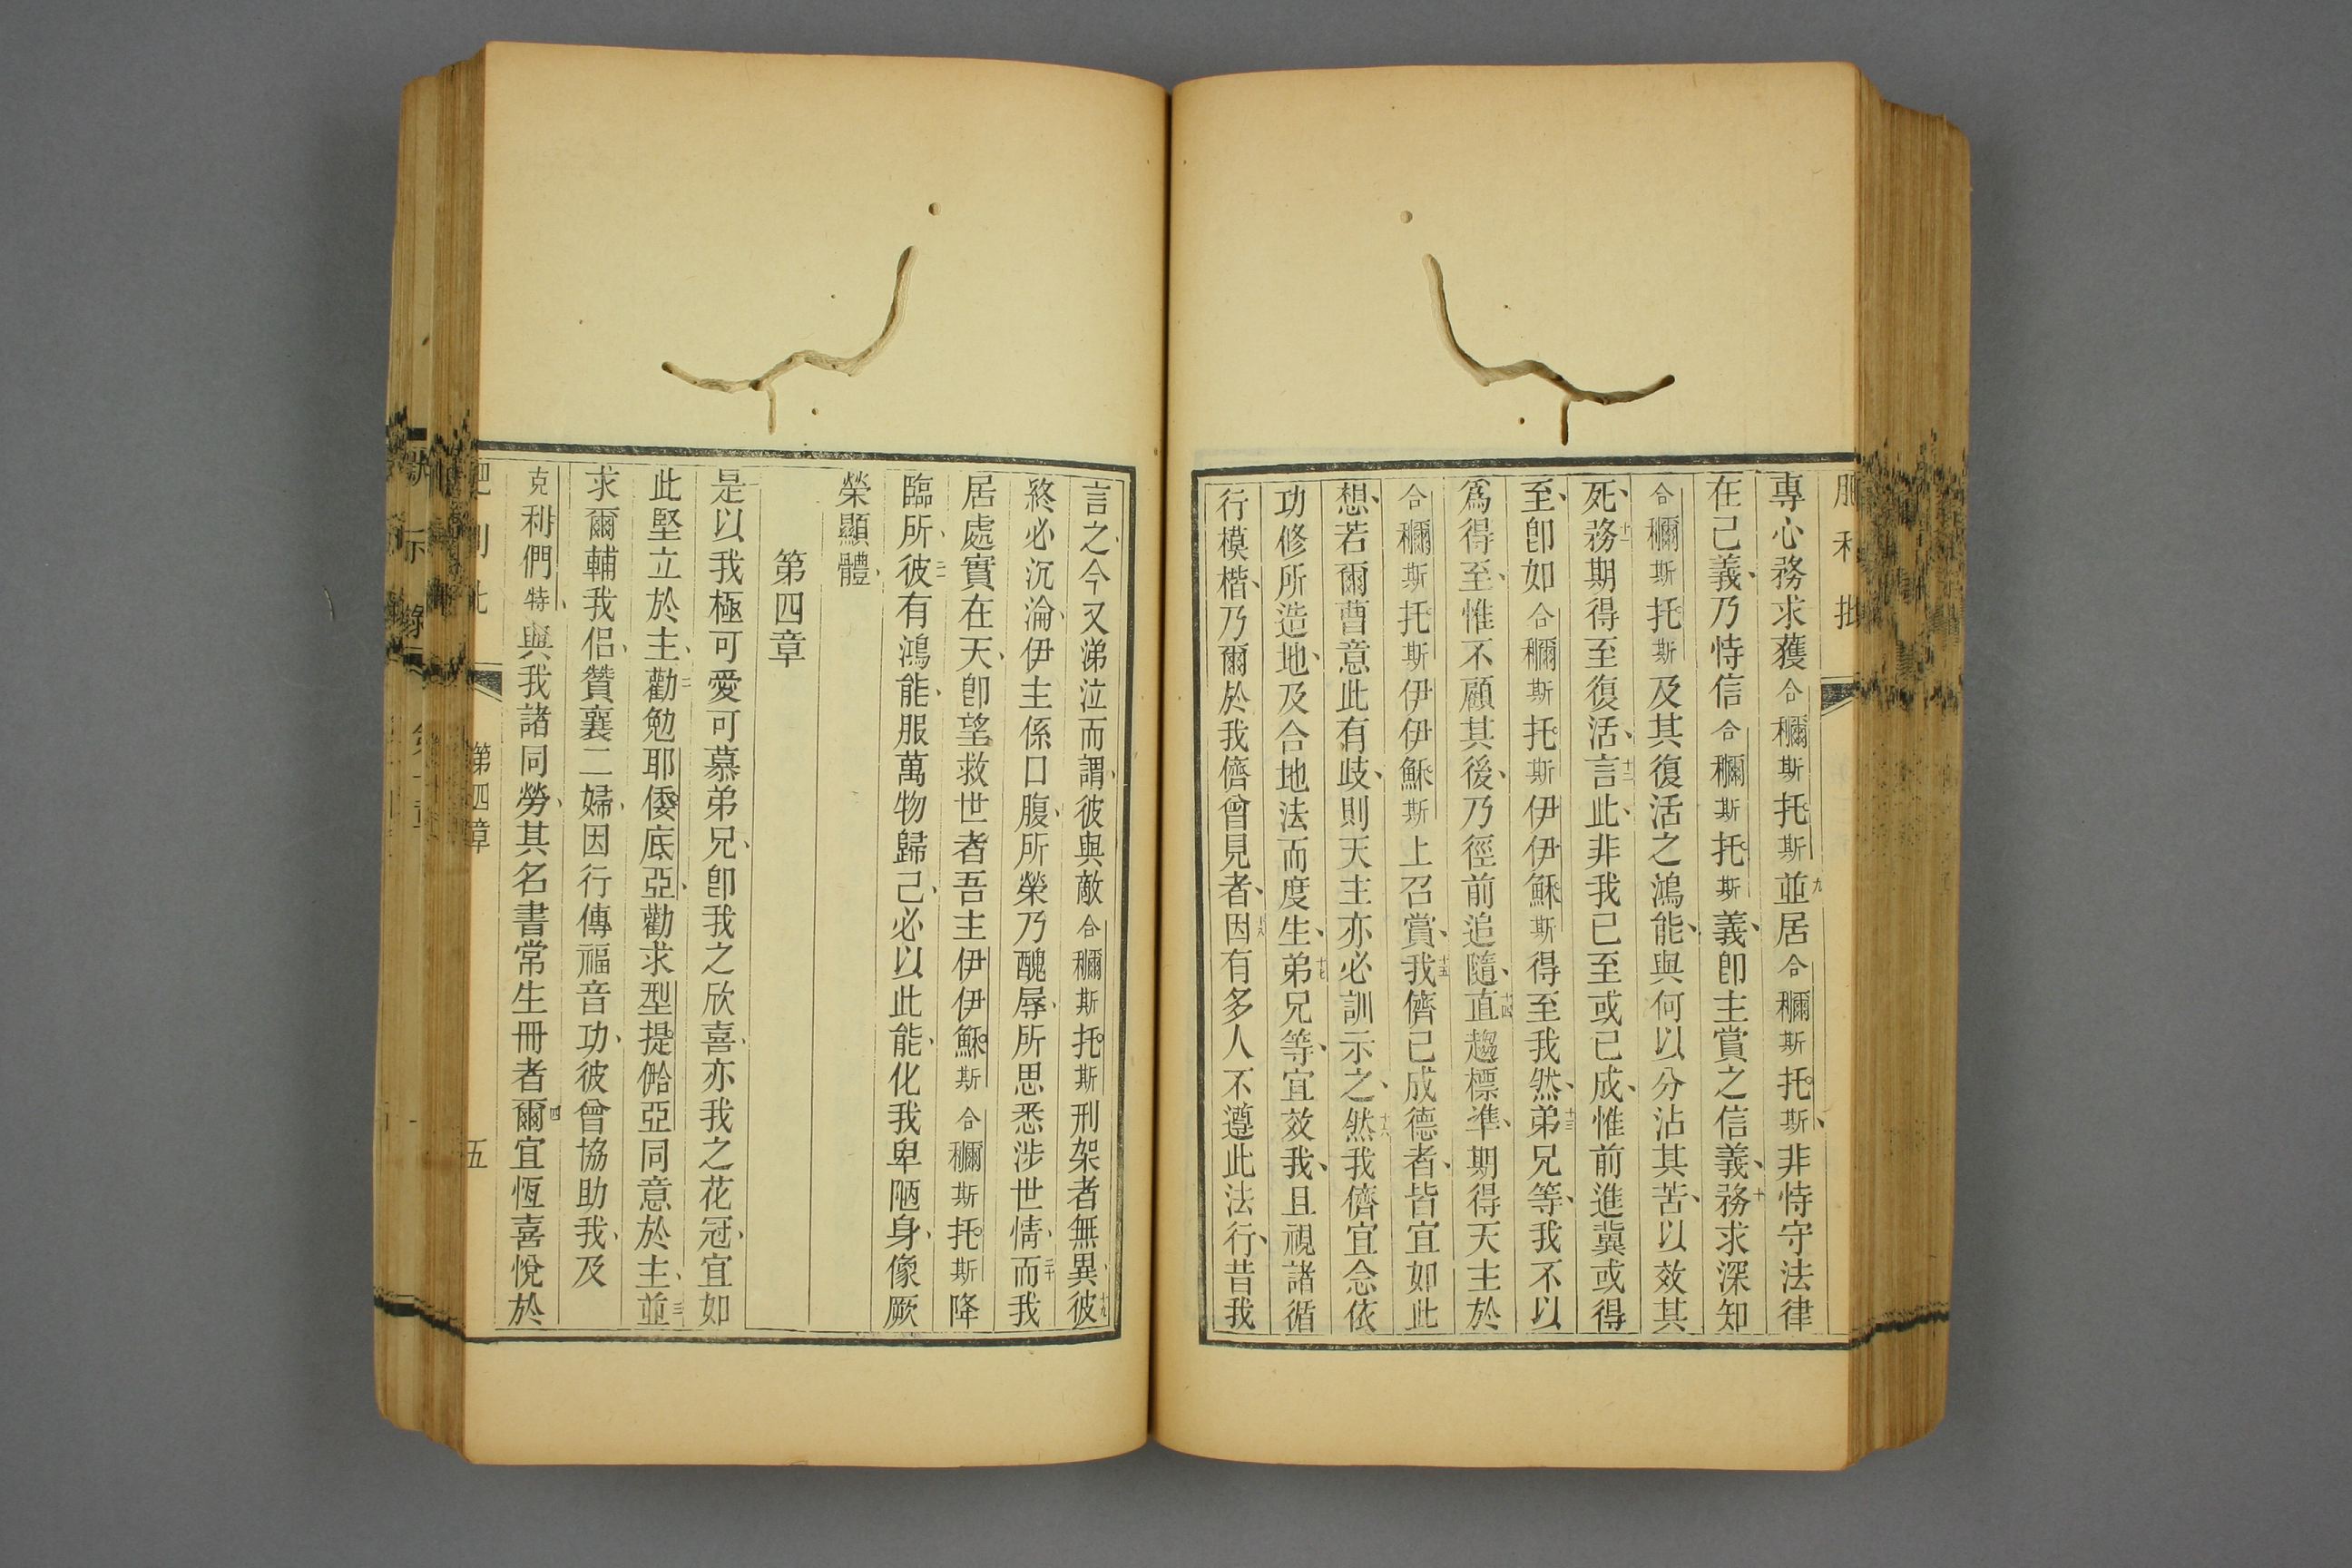 肥利批
專心務求獲合穪斯托斯九並居合穪斯托斯、非恃守法律
在己義、乃恃信合穪斯托斯義、卽主賞之信義、十務求深知
合穪斯托斯及其復活之鴻能、與何以分沾其苦、以效其
死、十一務期得至復活、十二言此、非我已至或已成、惟前進冀或得
至、卽如合穪斯托斯伊伊穌斯得至我然、十三弟兄等、我不以
爲得至、惟不顧其後、乃徑前追隨、十四直趨標準、期得天主於
合穪斯托斯伊伊穌斯上召賞、十五我儕已成德者、皆宜如此
想、若爾曹意此有歧、則天主亦必訓示之、十六然我儕宜念依
功修所造地、及合地法而度生、十七弟兄等、宜效我、且視諸循
行模楷、乃爾於我儕曾見者、十八因有多人不遵此法行、昔我
言之、今又涕泣而謂、彼與敵合穪斯托斯刑架者無異、十九彼
終必沉淪、伊主係口腹、所榮乃醜辱、所思悉涉世情、二十而我
居處實在天、卽望救世者吾主伊伊穌斯合穪斯托斯降
臨所、二一彼有鴻能、服萬物歸己、必以此能、化我卑陋身、像厥
榮顯體、
第四章
是以我極可愛可慕弟兄、卽我之欣喜、亦我之花冠、宜如
此堅立於主、二勸勉耶倭底亞、勸求型提㑹亞同意於主、三並
求爾輔我侶、贊襄二婦、因行傳福音功、彼曾協助我、及
克利們特、與我諸同勞、其名書常生冊者、四爾宜恆喜悅於
第四章
五